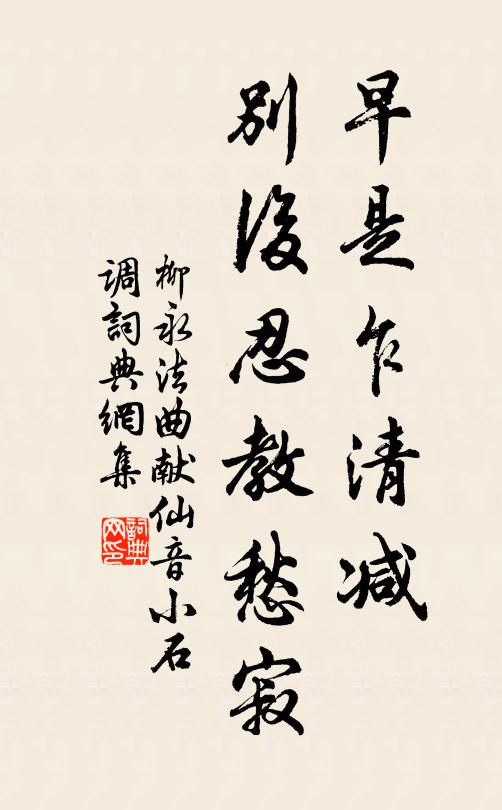 早是乍清减
别後忍教愁寂
柳永法曲献仙音小石
调詞典網集
詞典
网印